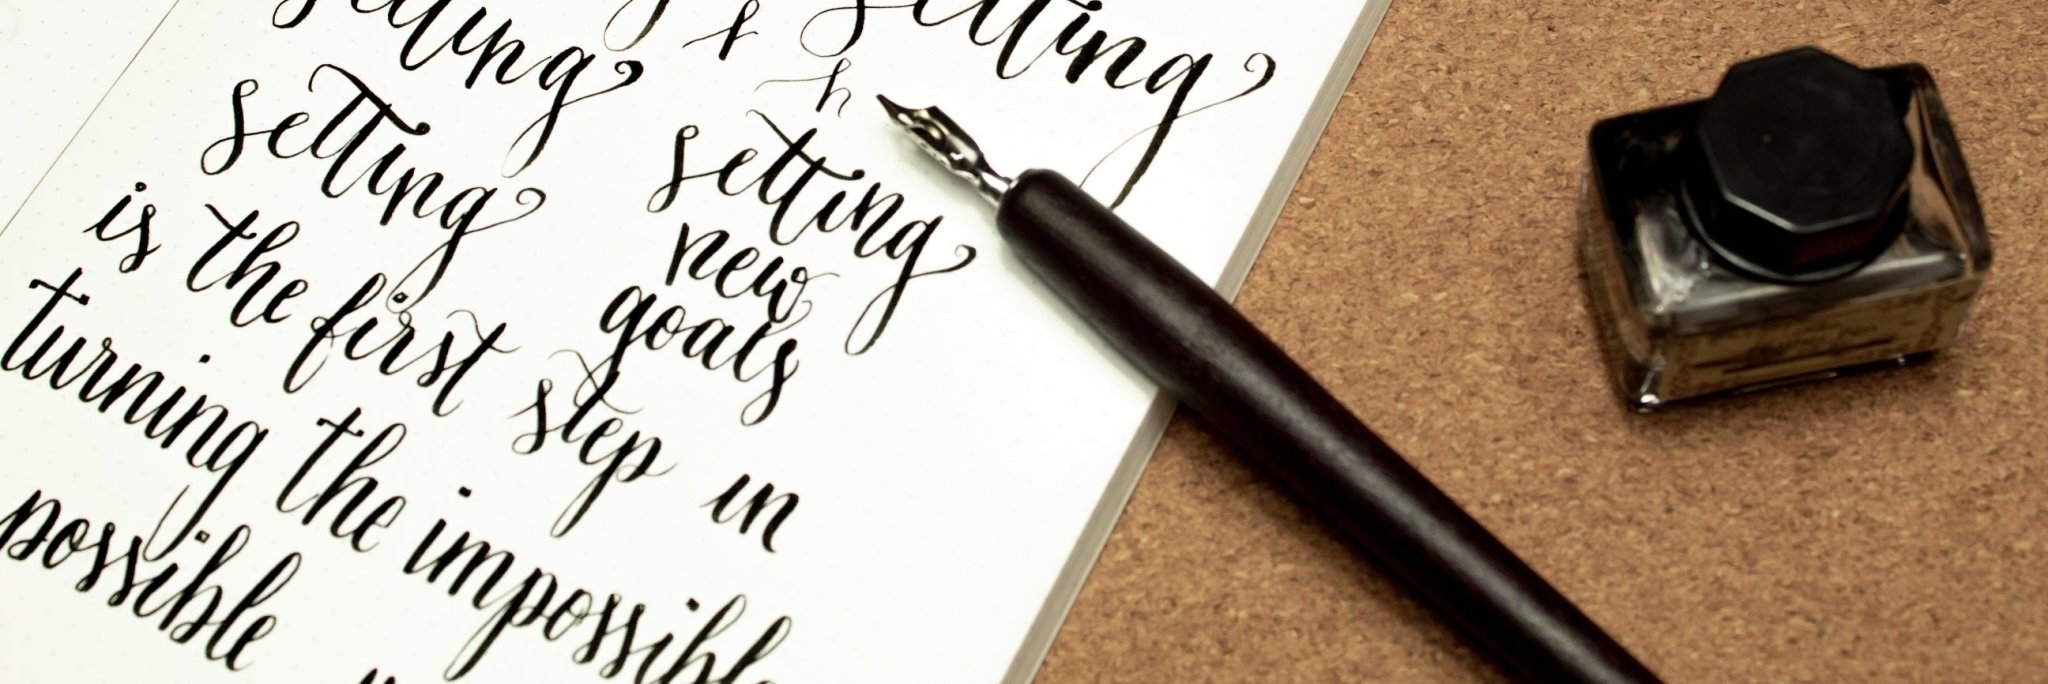 setting setting
setting setting
new
is the first goals
step in
turning the impossible
possible